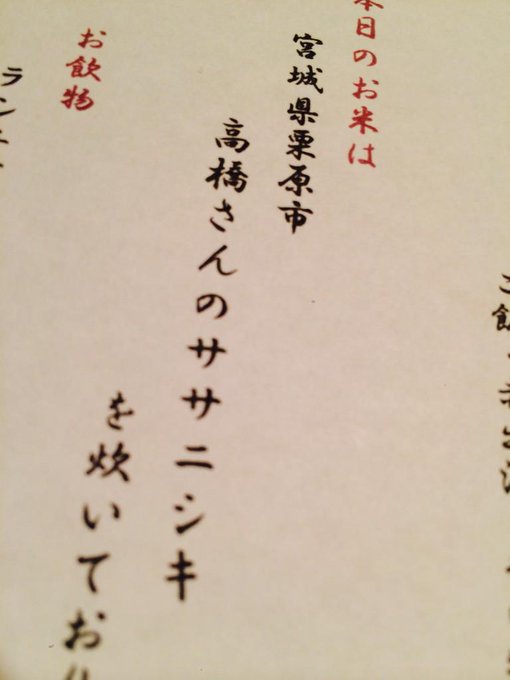 本日のお米は
宮城県栗原市
高橋さんのササニシキ
を炊いており
お飲物